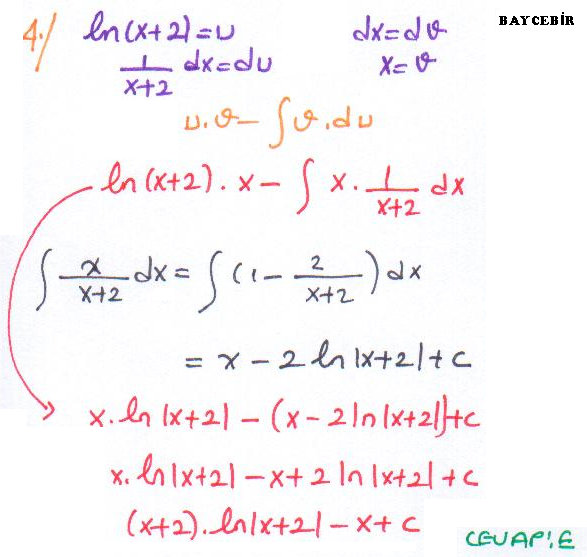 BAYCEBİR
4·/ ln(x+2)=u dx=dϑ
1/(x+2) dx=du x=ϑ
u.ϑ−∫ϑ.du
ln(x+2).x−∫x.1/(x+2) dx
∫x/(x+2) dx=∫(1−2/(x+2))dx
=x−2ln|x+2|+c
x.ln|x+2|−(x−2ln|x+2|)+c
x.ln|x+2|−x+2ln|x+2|+c
(x+2).ln|x+2|−x+c
CEVAP:E